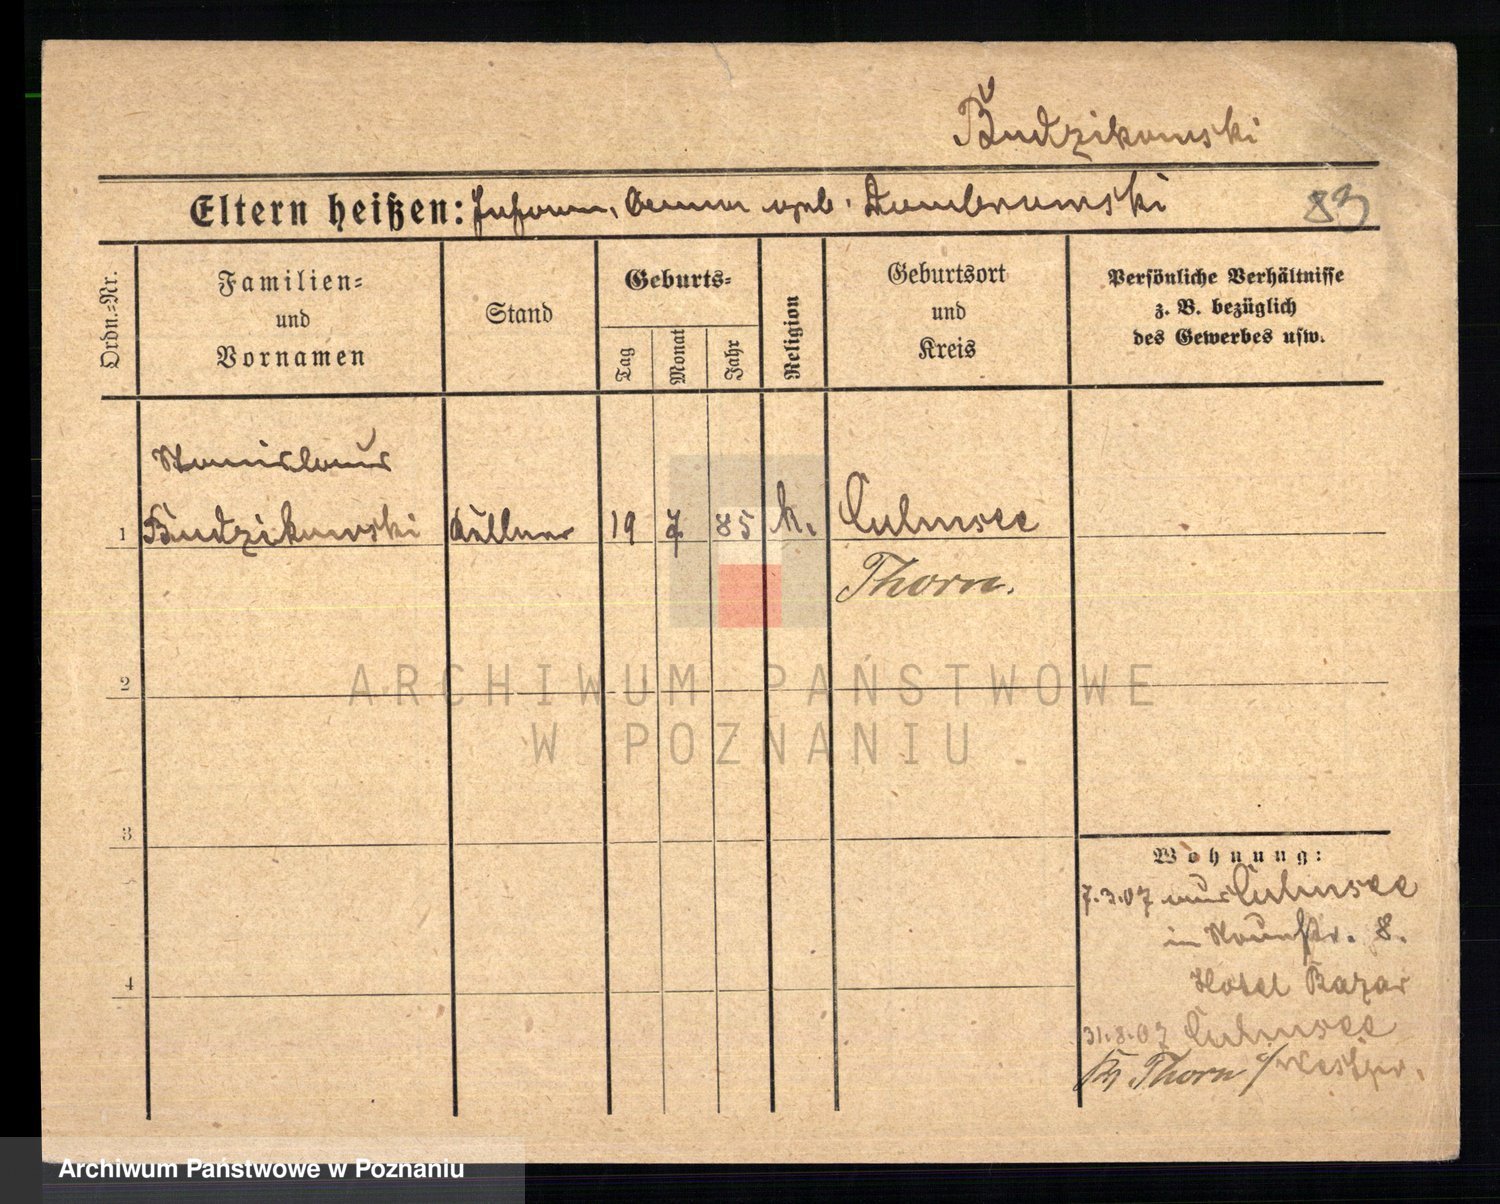 Budzikowski
Eltern heißen: Johann, Anna geb. Dombrowski
83
Ordn.-Nr.
Familien-
und
Vornamen
Stand
Geburts-
Tag
Monat
Jahr
Religion
Geburtsort
und
Kreis
Persönliche Verhältnisse
z. B. bezüglich
des Gewerbes usw.
Stanislaus
1 Budzikowski Kellner 19 7 85 k. Culmsee
Thorn.
ARCHIWUM PAŃSTWOWE
W POZNANIU
2
3
4
Wohnung:
7.3.07 aus Culmsee
in Neuestr. 8.
Hotel Bazar
31.8.07 Culmsee
Kr Thorn / Westpr.
Archiwum Państwowe w Poznaniu